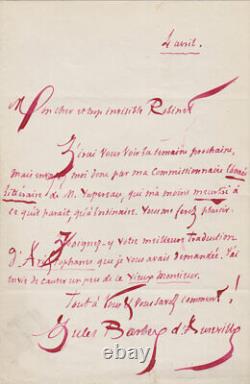 4 avril.
Mon cher et trop invisible Robinet
J'irai vous voir la semaine prochaine,
mais envoyez moi donc par ma Commissionnaire l'année
littéraire de M. Vapereau, qui m'a moins meurtri à
ce qui paraît, qu'à l'ordinaire. Vous me ferez plaisir.
Joignez-y votre meilleure traduction
d'Aristophane que je vous avais demandée. J'ai
envie de causer un peu de ce vieux monsieur.
Tout à Vous & vous savez comment !
Jules Barbey d'Aurevilly
ebay